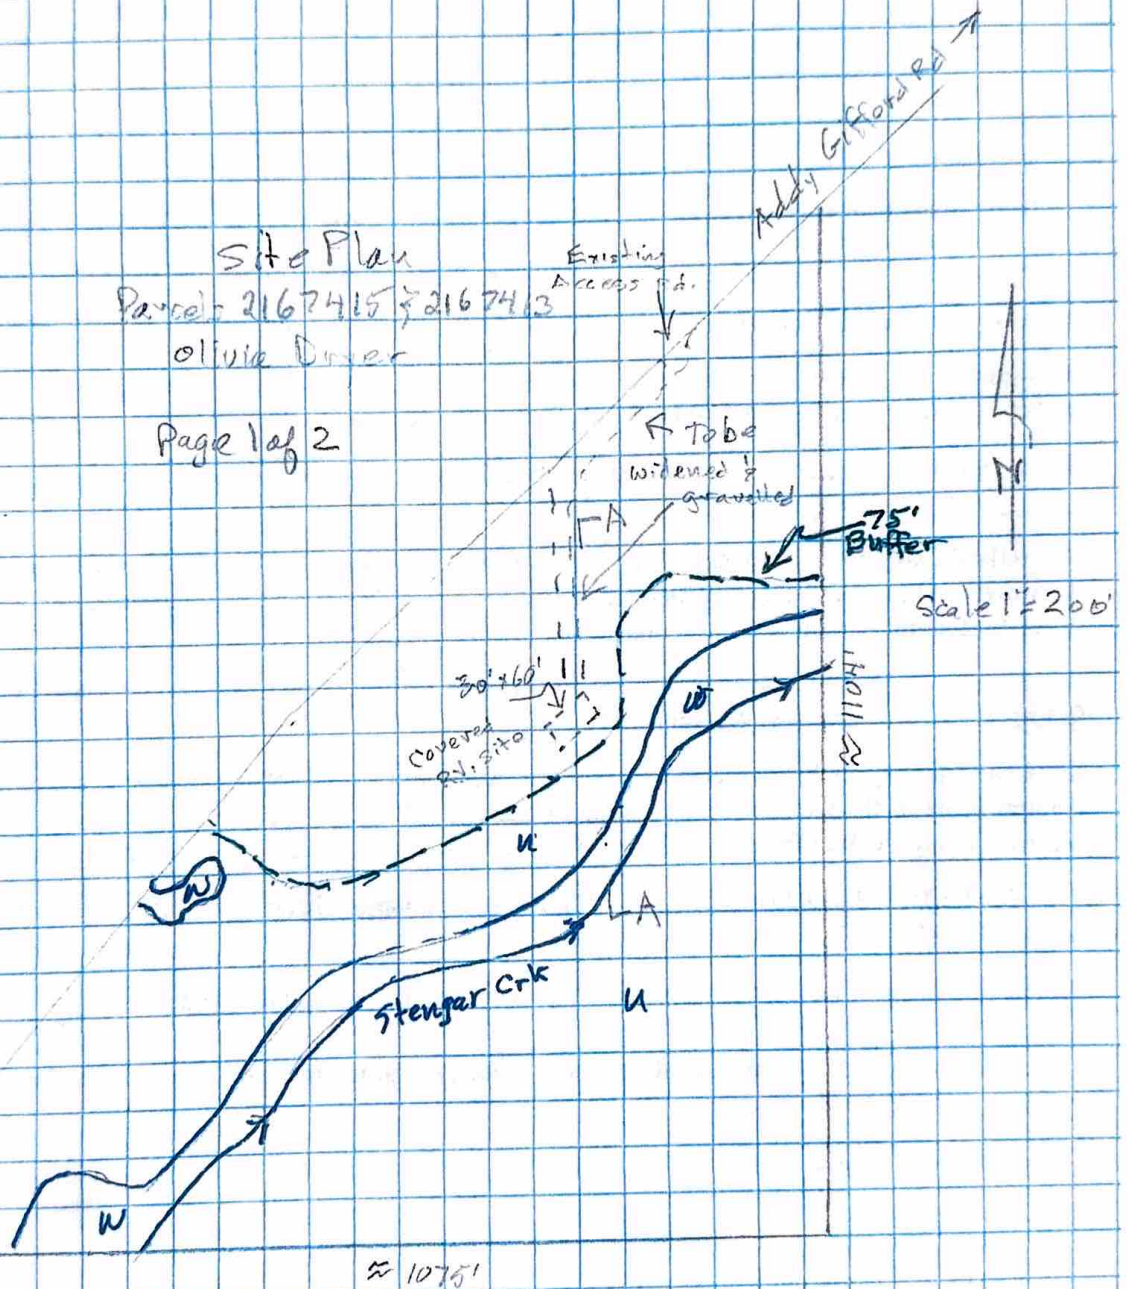 Addy Gifford Rd
Site Plan
Parcels 2167415 & 2167413
Olivia Dryer
Page 1 of 2
Existing
Access rd.
To be
widened &
gravelled
A
N
75'
Buffer
Scale 1"=200'
≈ 1104'
30'x60'
Covered
R.V. Site
W
U
W
A
Stengar Crk
U
W
≈ 1075'